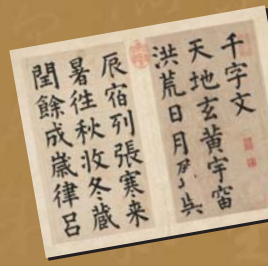 千字文
天地玄黄宇宙
洪荒日月
辰宿列張寒来
暑往秋收冬藏
閏餘成歲律吕